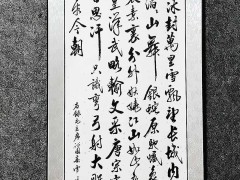 冰封萬里雪飄望長城內
滔山舞銀蛇原馳蠟
素裹分外妖嬈江山如此
皇漢武略輸文采唐宗
吉思汗只識彎弓射大雕
今朝
右錄毛主席沁園春雪